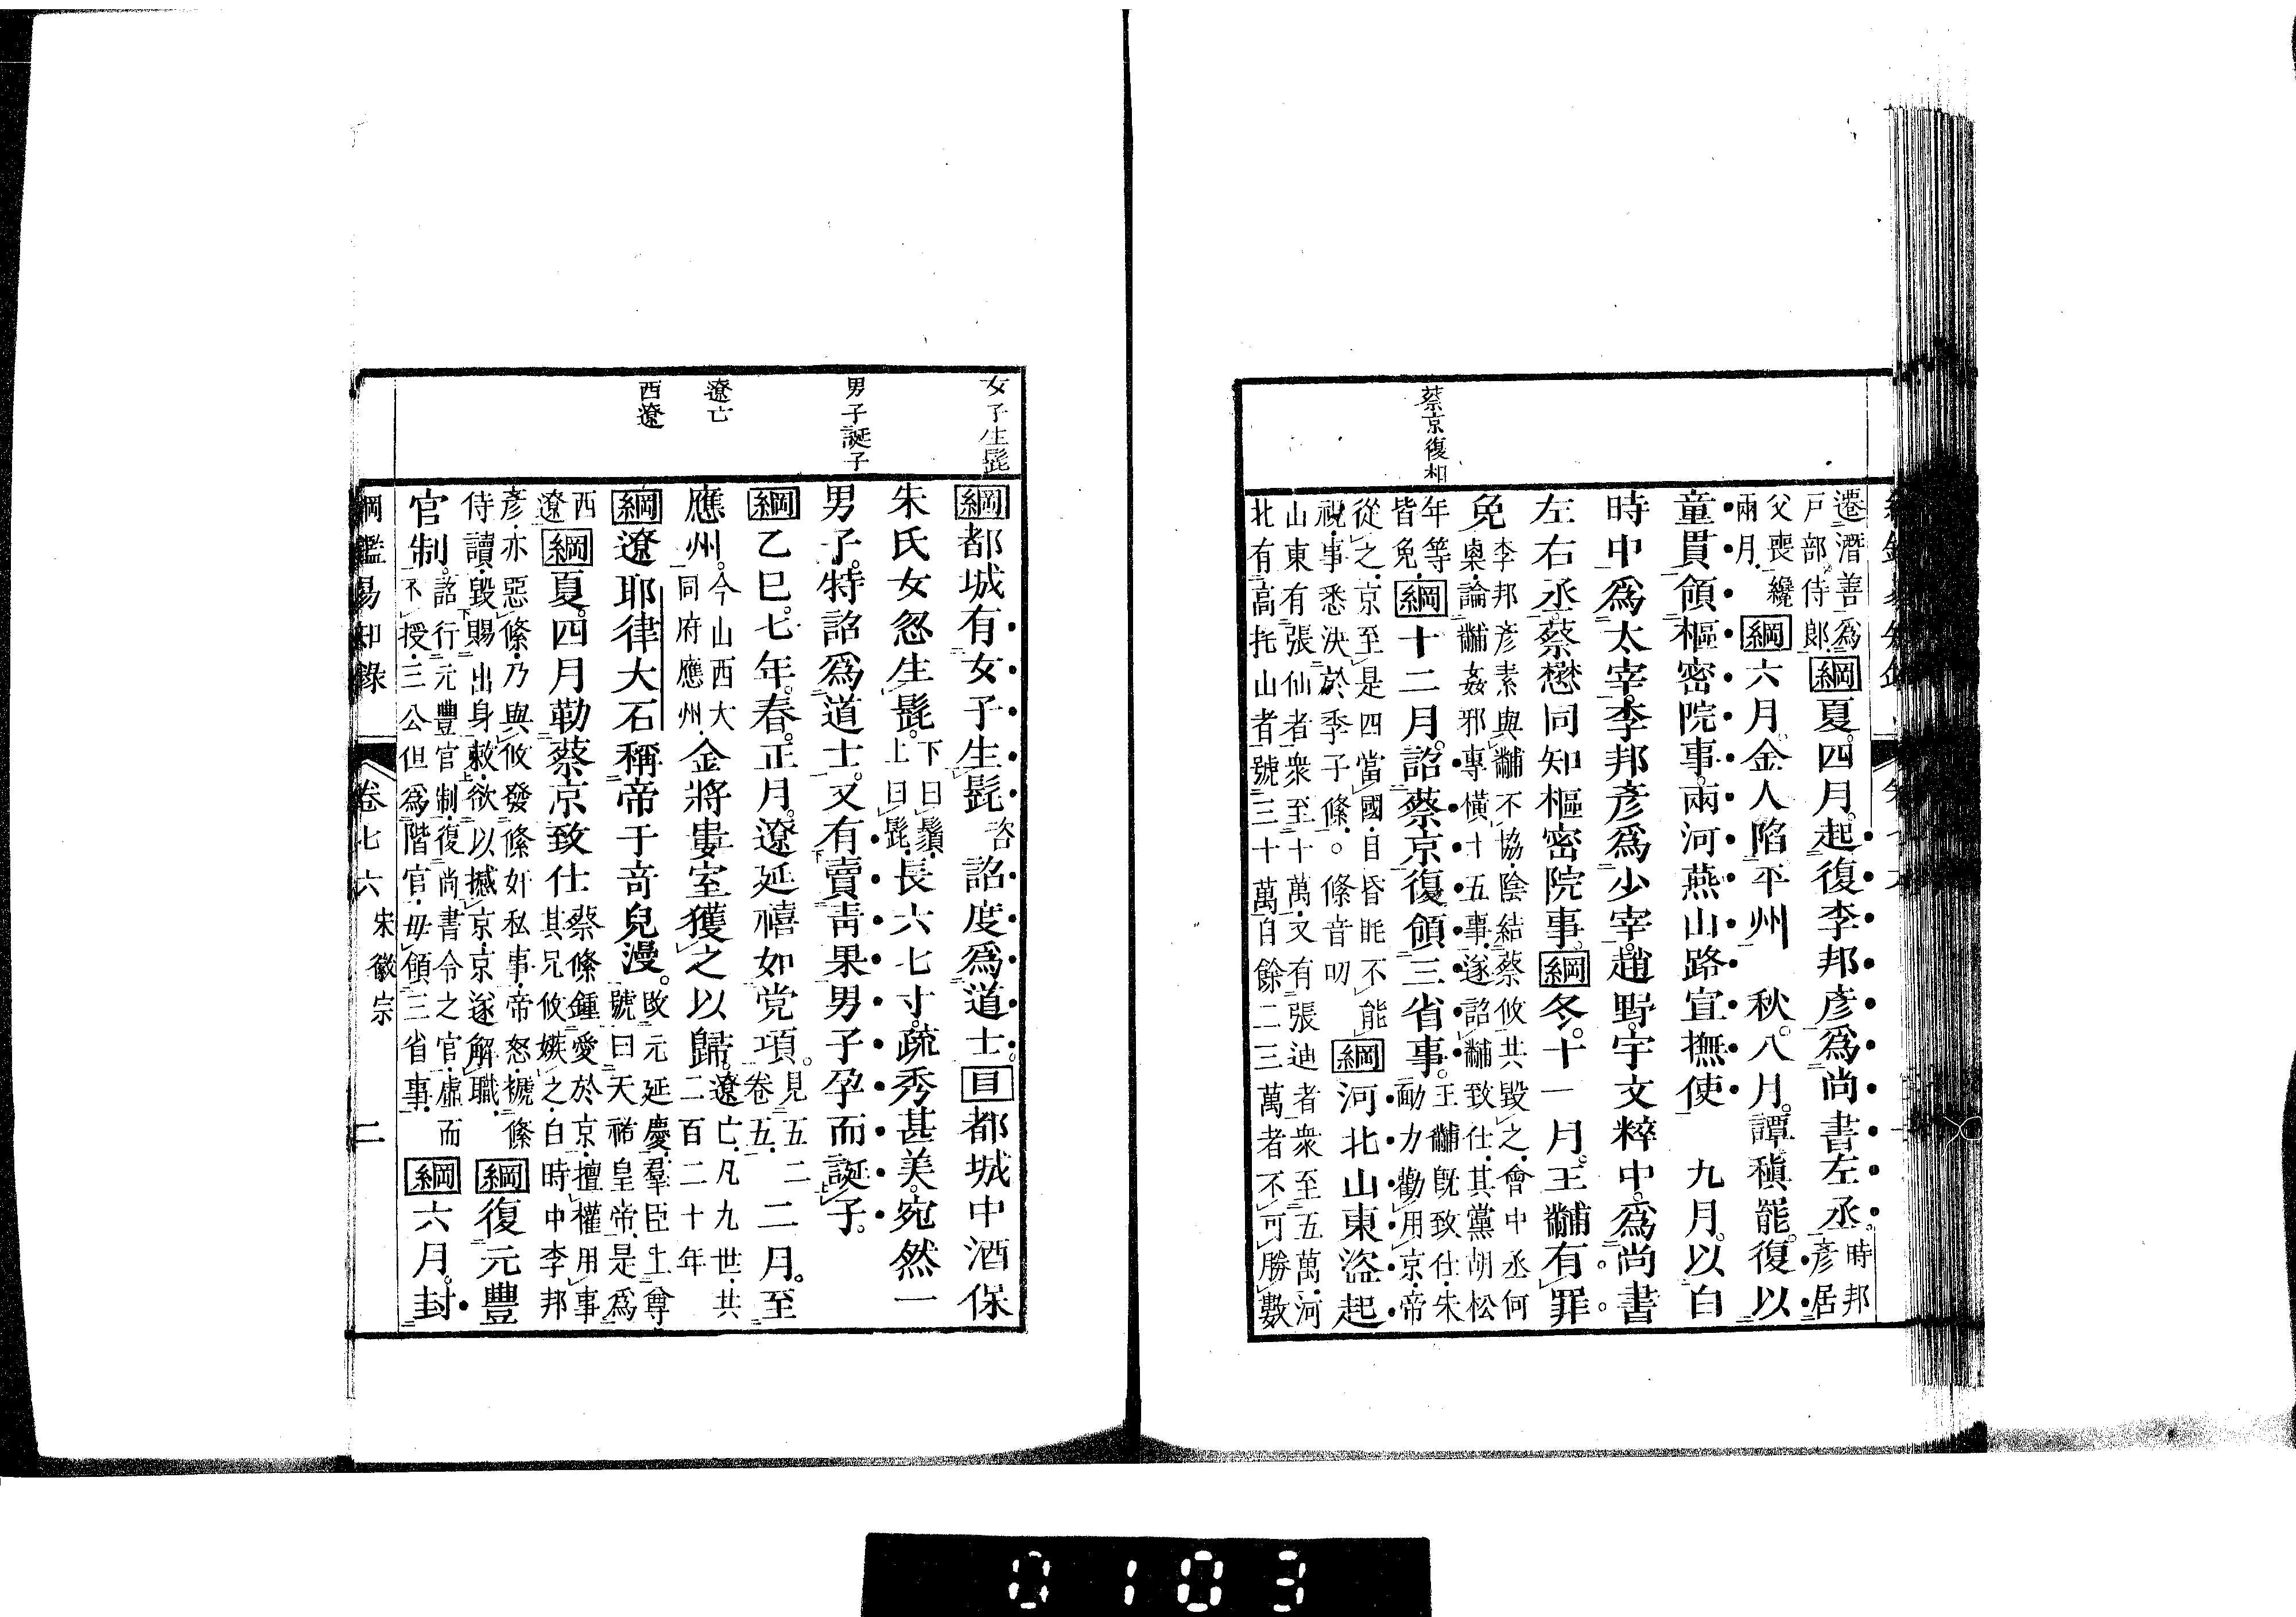 蔡京復相
遷潛善爲戶部侍郎綱夏四月起復李邦彦爲尚書左丞時邦彦居
父喪纔兩月綱六月金人陷平州　秋八月譚稹罷復以
童貫領樞密院事兩河燕山路宣撫使　九月以白
時中爲太宰李邦彦爲少宰趙野宇文粹中爲尚書
左右丞蔡懋同知樞密院事綱冬十一月王黼有罪
免李邦彦素與黼不協陰結蔡攸共毀之會中丞何㮚論黼姦邪專橫十五事遂詔黼致仕其黨胡松
年等皆免綱十二月詔蔡京復領三省事王黼既致仕朱勔力勸用京帝
從之京至是四當國自昏眊不能視事悉決於季子絛。絛音叨綱河北山東盜起
山東有張仙者衆至十萬又有張迪者衆至五萬河北有高托山者號三十萬自餘二三萬者不可勝數
女子生髭
男子誕子
遼亡
西遼
綱都城有女子生髭咨詔度爲道士目都城中酒保
朱氏女忽生髭下曰鬚上曰髭長六七寸疏秀甚美宛然一
男子特詔爲道士又有賣靑果男子孕而誕子
綱乙巳七年春正月遼延禧如党項見五二卷五二月至
應州今山西大同府應州金將婁室獲之以歸遼亡凡九世共二百二十年
綱遼耶律大石稱帝于奇兒漫改元延慶羣臣上尊號曰天祐皇帝是爲
西遼綱夏四月勒蔡京致仕蔡絛鍾愛於京擅權用事其兄攸嫉之白時中李邦
彦亦惡絛乃與攸發絛奸私事帝怒褫絛侍讀毀賜出身敕欲以撼京京遂解職綱復元豐
官制詔行元豐官制復尚書令之官虛而不授三公但爲階官毋領三省事綱六月封
綱鑑易知錄　卷七六　宋徽宗　二
0103